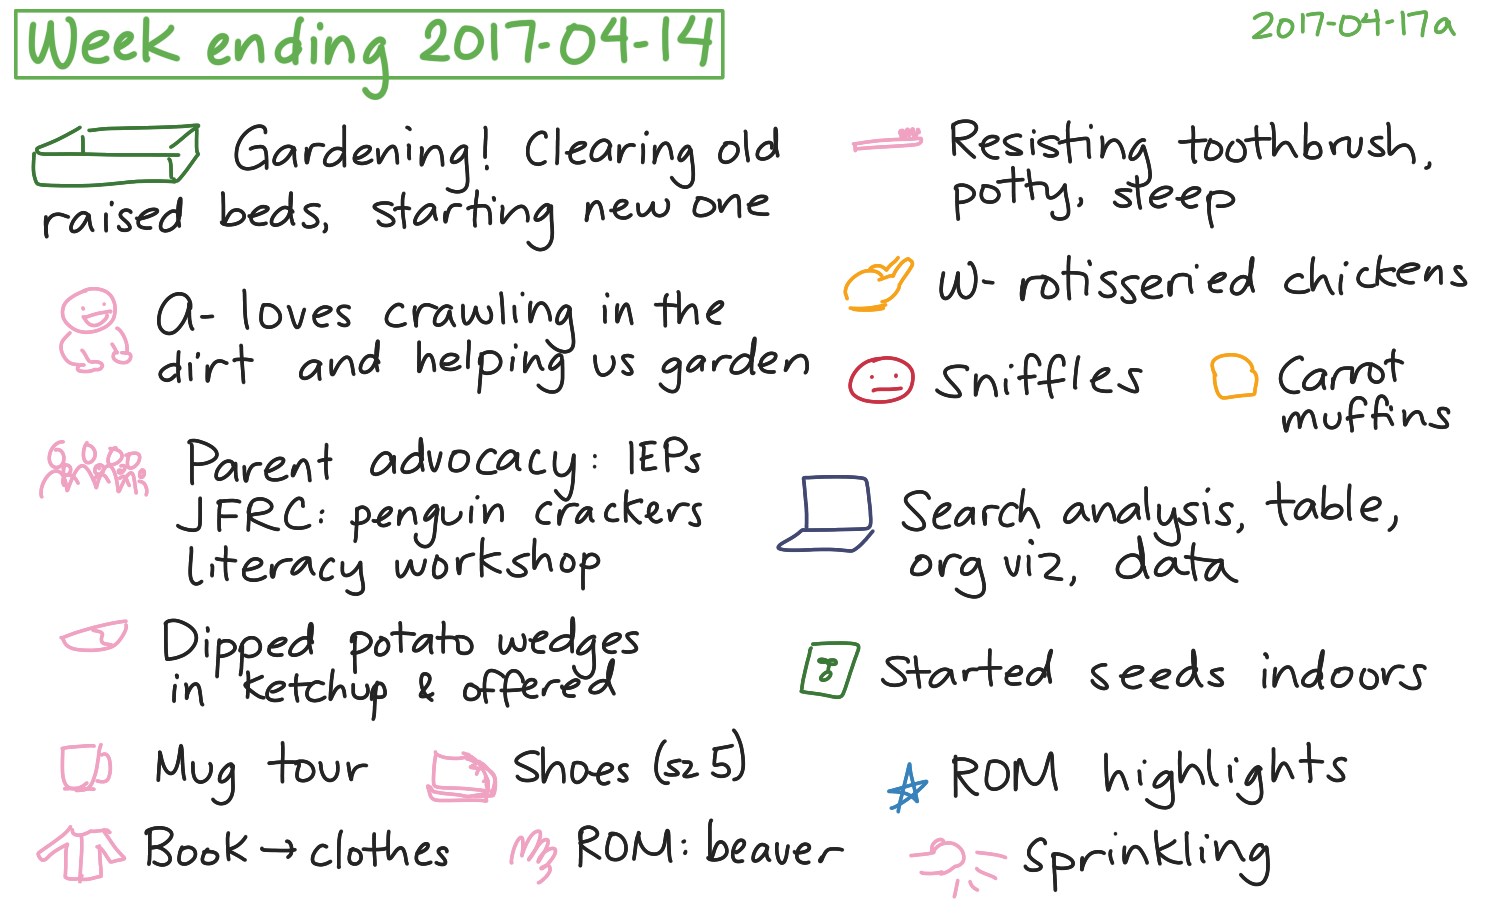 Week ending 2017-04-14
2017-04-17a
Gardening! Clearing old
raised beds, starting new one
A- loves crawling in the
dirt and helping us garden
Parent advocacy: IEPs
JFRC: penguin crackers
literacy workshop
Dipped potato wedges
in ketchup & offered
Mug tour
Shoes (sz 5)
Book → clothes
ROM: beaver
Resisting toothbrush,
potty, sleep
W- rotisseried chickens
Sniffles
Carrot
muffins
Search analysis, table,
org viz, data
Started seeds indoors
ROM highlights
Sprinkling